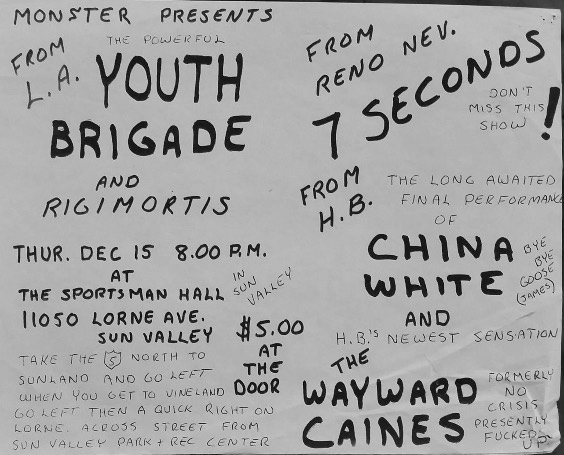 MONSTER PRESENTS
FROM
L.A.
THE POWERFUL
YOUTH
BRIGADE
AND
RIGIMORTIS
THUR. DEC 15 8.00 P.M.
AT
THE SPORTSMAN HALL
IN
SUN
VALLEY
11050 LORNE AVE.
SUN VALLEY
$5.00
AT
THE
DOOR
TAKE THE 5 NORTH TO
SUNLAND AND GO LEFT
WHEN YOU GET TO VINELAND
GO LEFT THEN A QUICK RIGHT ON
LORNE. ACROSS STREET FROM
SUN VALLEY PARK + REC CENTER
FROM
RENO NEV.
7 SECONDS
DON'T
MISS THIS
SHOW !
FROM
H.B.
THE LONG AWAITED
FINAL PERFORMANCE
OF
CHINA
WHITE
BYE
BYE
GOOSE
(JAMES)
AND
H.B.'S NEWEST SENSATION
THE
WAYWARD
CAINES
FORMERLY
NO
CRISIS
PRESENTLY
FUCKED
UP